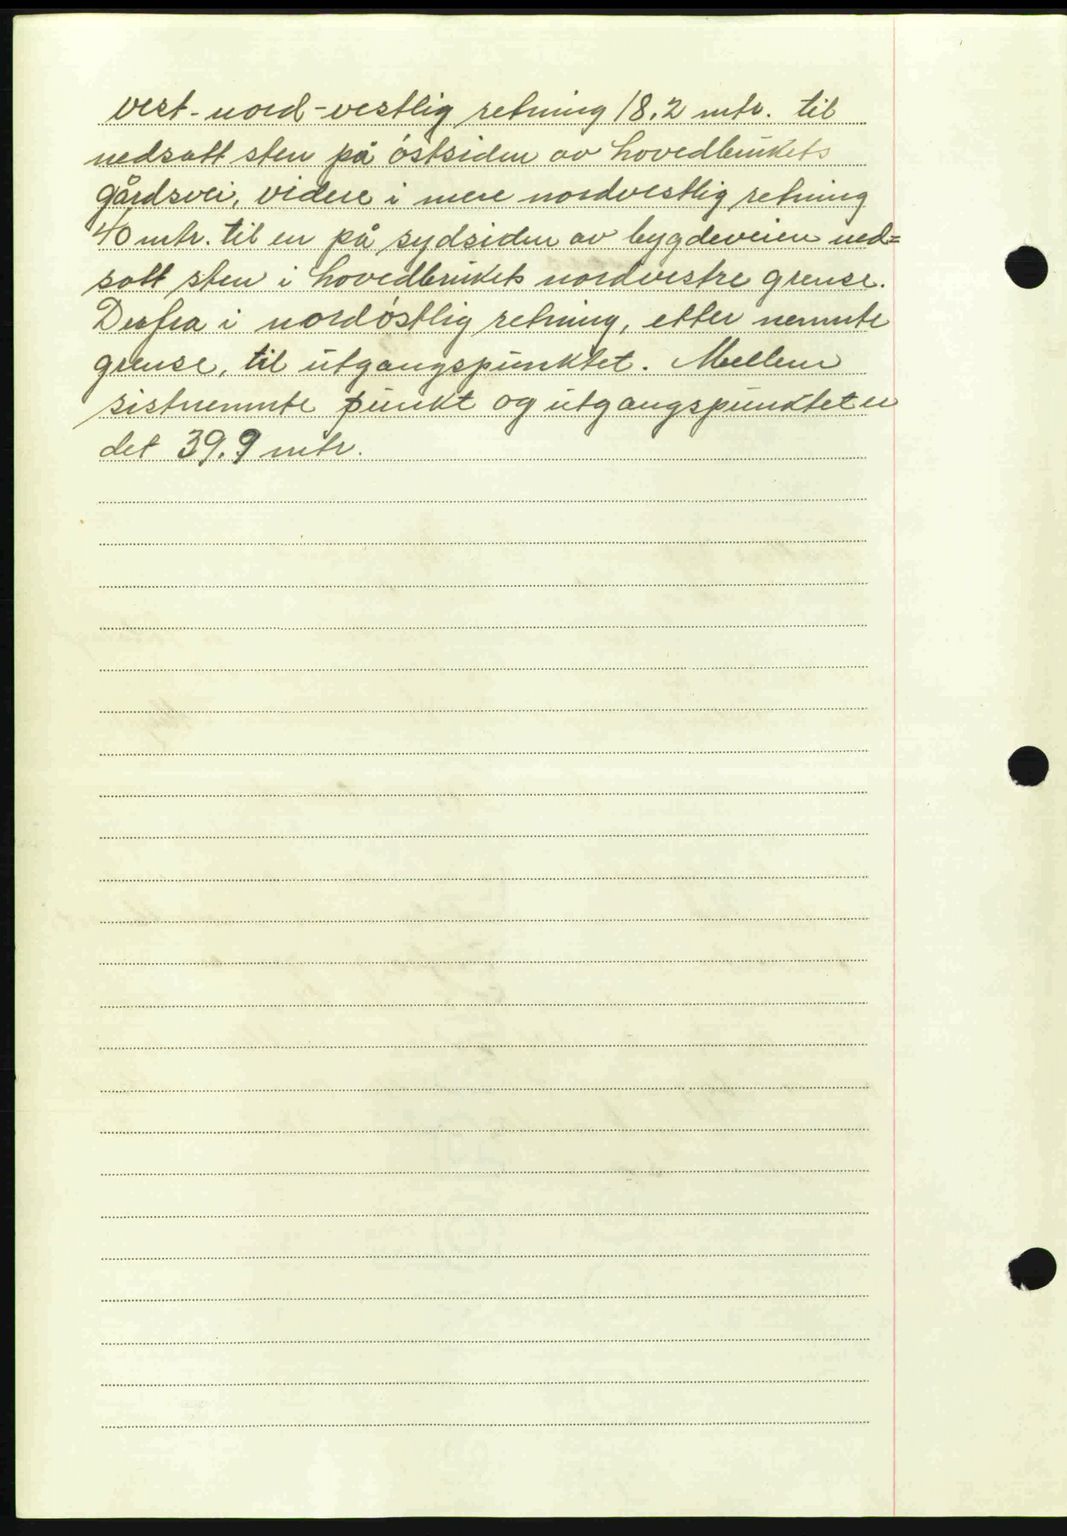 vest-nord-vestlig retning 18,2 mtr. til
nedsatt sten på østsiden av hovedbrukets
gårdsvei, videre i mere nordvestlig retning
40 mtr. til en på sydsiden av bygdeveien ned=
satt sten i hovedbrukets nordvestre grense.
Derfra i nordøstlig retning, etter nevnte
grense, til utgangspunktet. Mellem
sistnevnte punkt og utgangspunktet er
det 39,9 mtr.